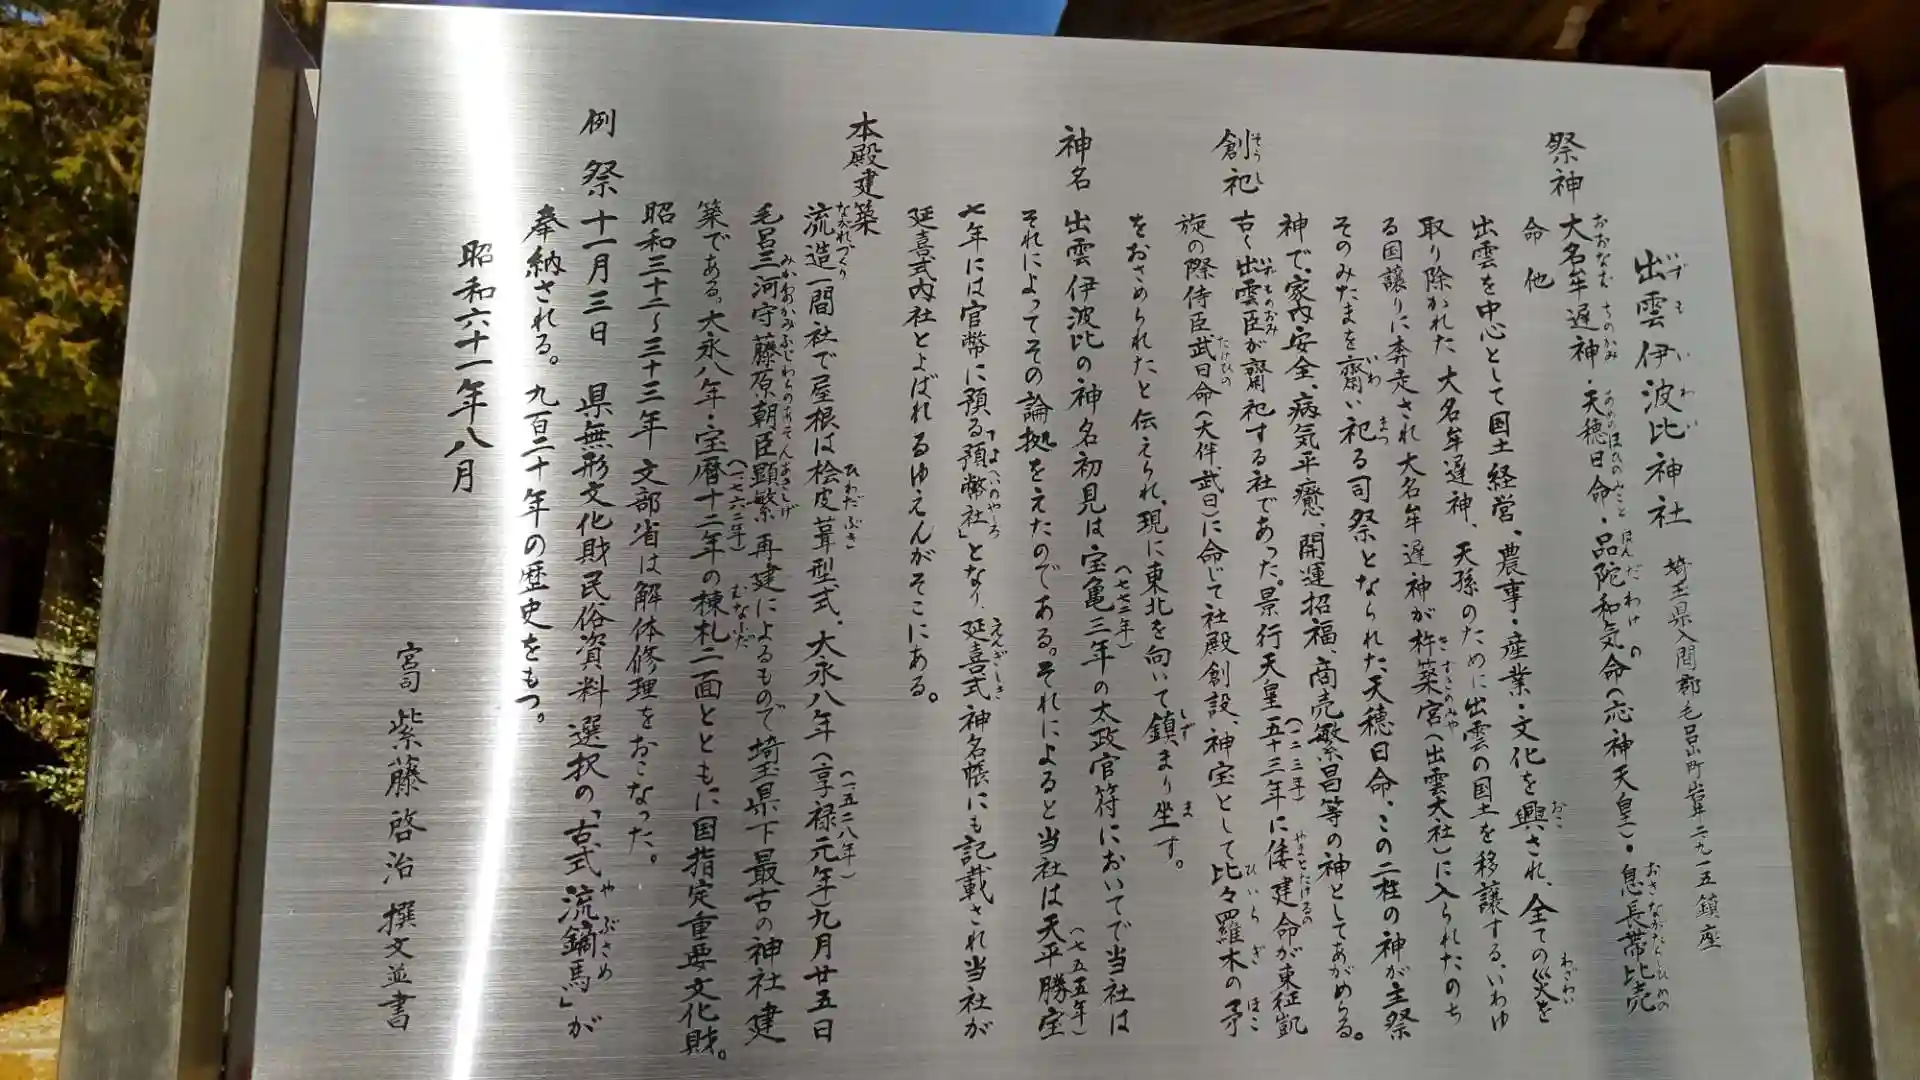 出雲伊波比神社 埼玉県入間郡毛呂山町岩井二九一五鎮座
祭神 大名牟遅神・天穂日命・品陀和気命(応神天皇)・息長帯比売
命 他
出雲を中心として国土経営、農事・産業・文化を興され、全ての災を
取り除かれた大名牟遅神、天孫のために出雲の国土を移譲する、いわゆ
る国譲りに奔走され大名牟遅神が杵築宮(出雲大社)に入られたのち
そのみたまを齋い祀る司祭となられた天穂日命・この二柱の神が主祭
神で、家内安全、病気平癒、開運招福、商売繁昌等の神としてあがめらる。
創祀 古く出雲臣が齋祀する社であった。景行天皇五十三年(一二三年)に倭建命が東征凱
旋の際侍臣武日命(大伴武日)に命じて社殿創設、神宝として比々羅木の矛
をおさめられたと伝えられ、現に東北を向いて鎮まり坐す。
神名 出雲伊波比の神名初見は宝亀三年(七七二年)の太政官符においてで当社は
それによってその論拠をえたのである。それによると当社は天平勝宝(七五五年)
七年には官幣に預る「預幣社」となり、延喜式神名帳にも記載され当社が
延喜式内社とよばれるゆえんがそこにある。
本殿建築 流造一間社で屋根は桧皮葺型式、大永八年(享禄元年(一五二八年)九月廿五日
毛呂三河守藤原朝臣顕繁再建によるもので埼玉県下最古の神社建
築である。大永八年・宝暦十二年(一七六二年)の棟札二面とともに国指定重要文化財。
昭和三十二〜三十三年文部省は解体修理をおこなった。
例祭 十一月三日 県無形文化財民俗資料選択の「古式流鏑馬」が
奉納される。九百二十年の歴史をもつ。
昭和六十一年八月
宮司 紫藤啓治 撰文並書